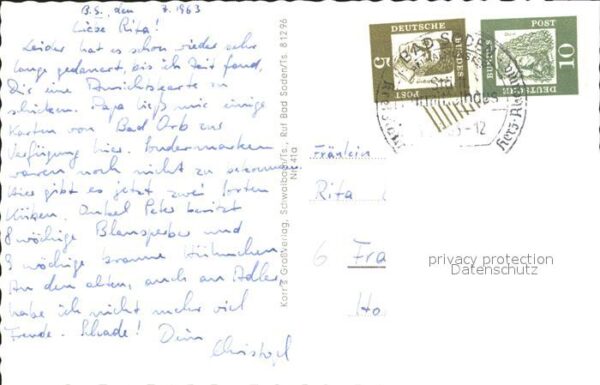 B.S., den 7. 1963
Liebe Rita!
Leider hat es schon wieder sehr
lange gedauert, bis ich Zeit fand,
Dir eine Ansichtskarte zu
schicken. Papa ließ mir einige
Karten von Bad Orb zur
Verfügung hier. Sondermarken
waren noch nicht zu bekommen.
Hier gibt es jetzt zwei Sorten
Küken. Onkel Peter besitzt
8 wöchige Blausperber und
3 wöchige braune Hühnchen.
An den alten, auch am Adler,
habe ich nicht mehr viel
Freude. Schade! Dein
Christof
Korr's Großverlag, Schwalbach/Ts., Ruf Bad Soden/Ts. 81296
Nr. 41a
DEUTSCHE
BUNDES
POST
5
POST
10
DEUTSCHE
BUNDES
BAD SODEN
-12
Fräulein
Rita
6 Fra
Ho
privacy protection
Datenschutz